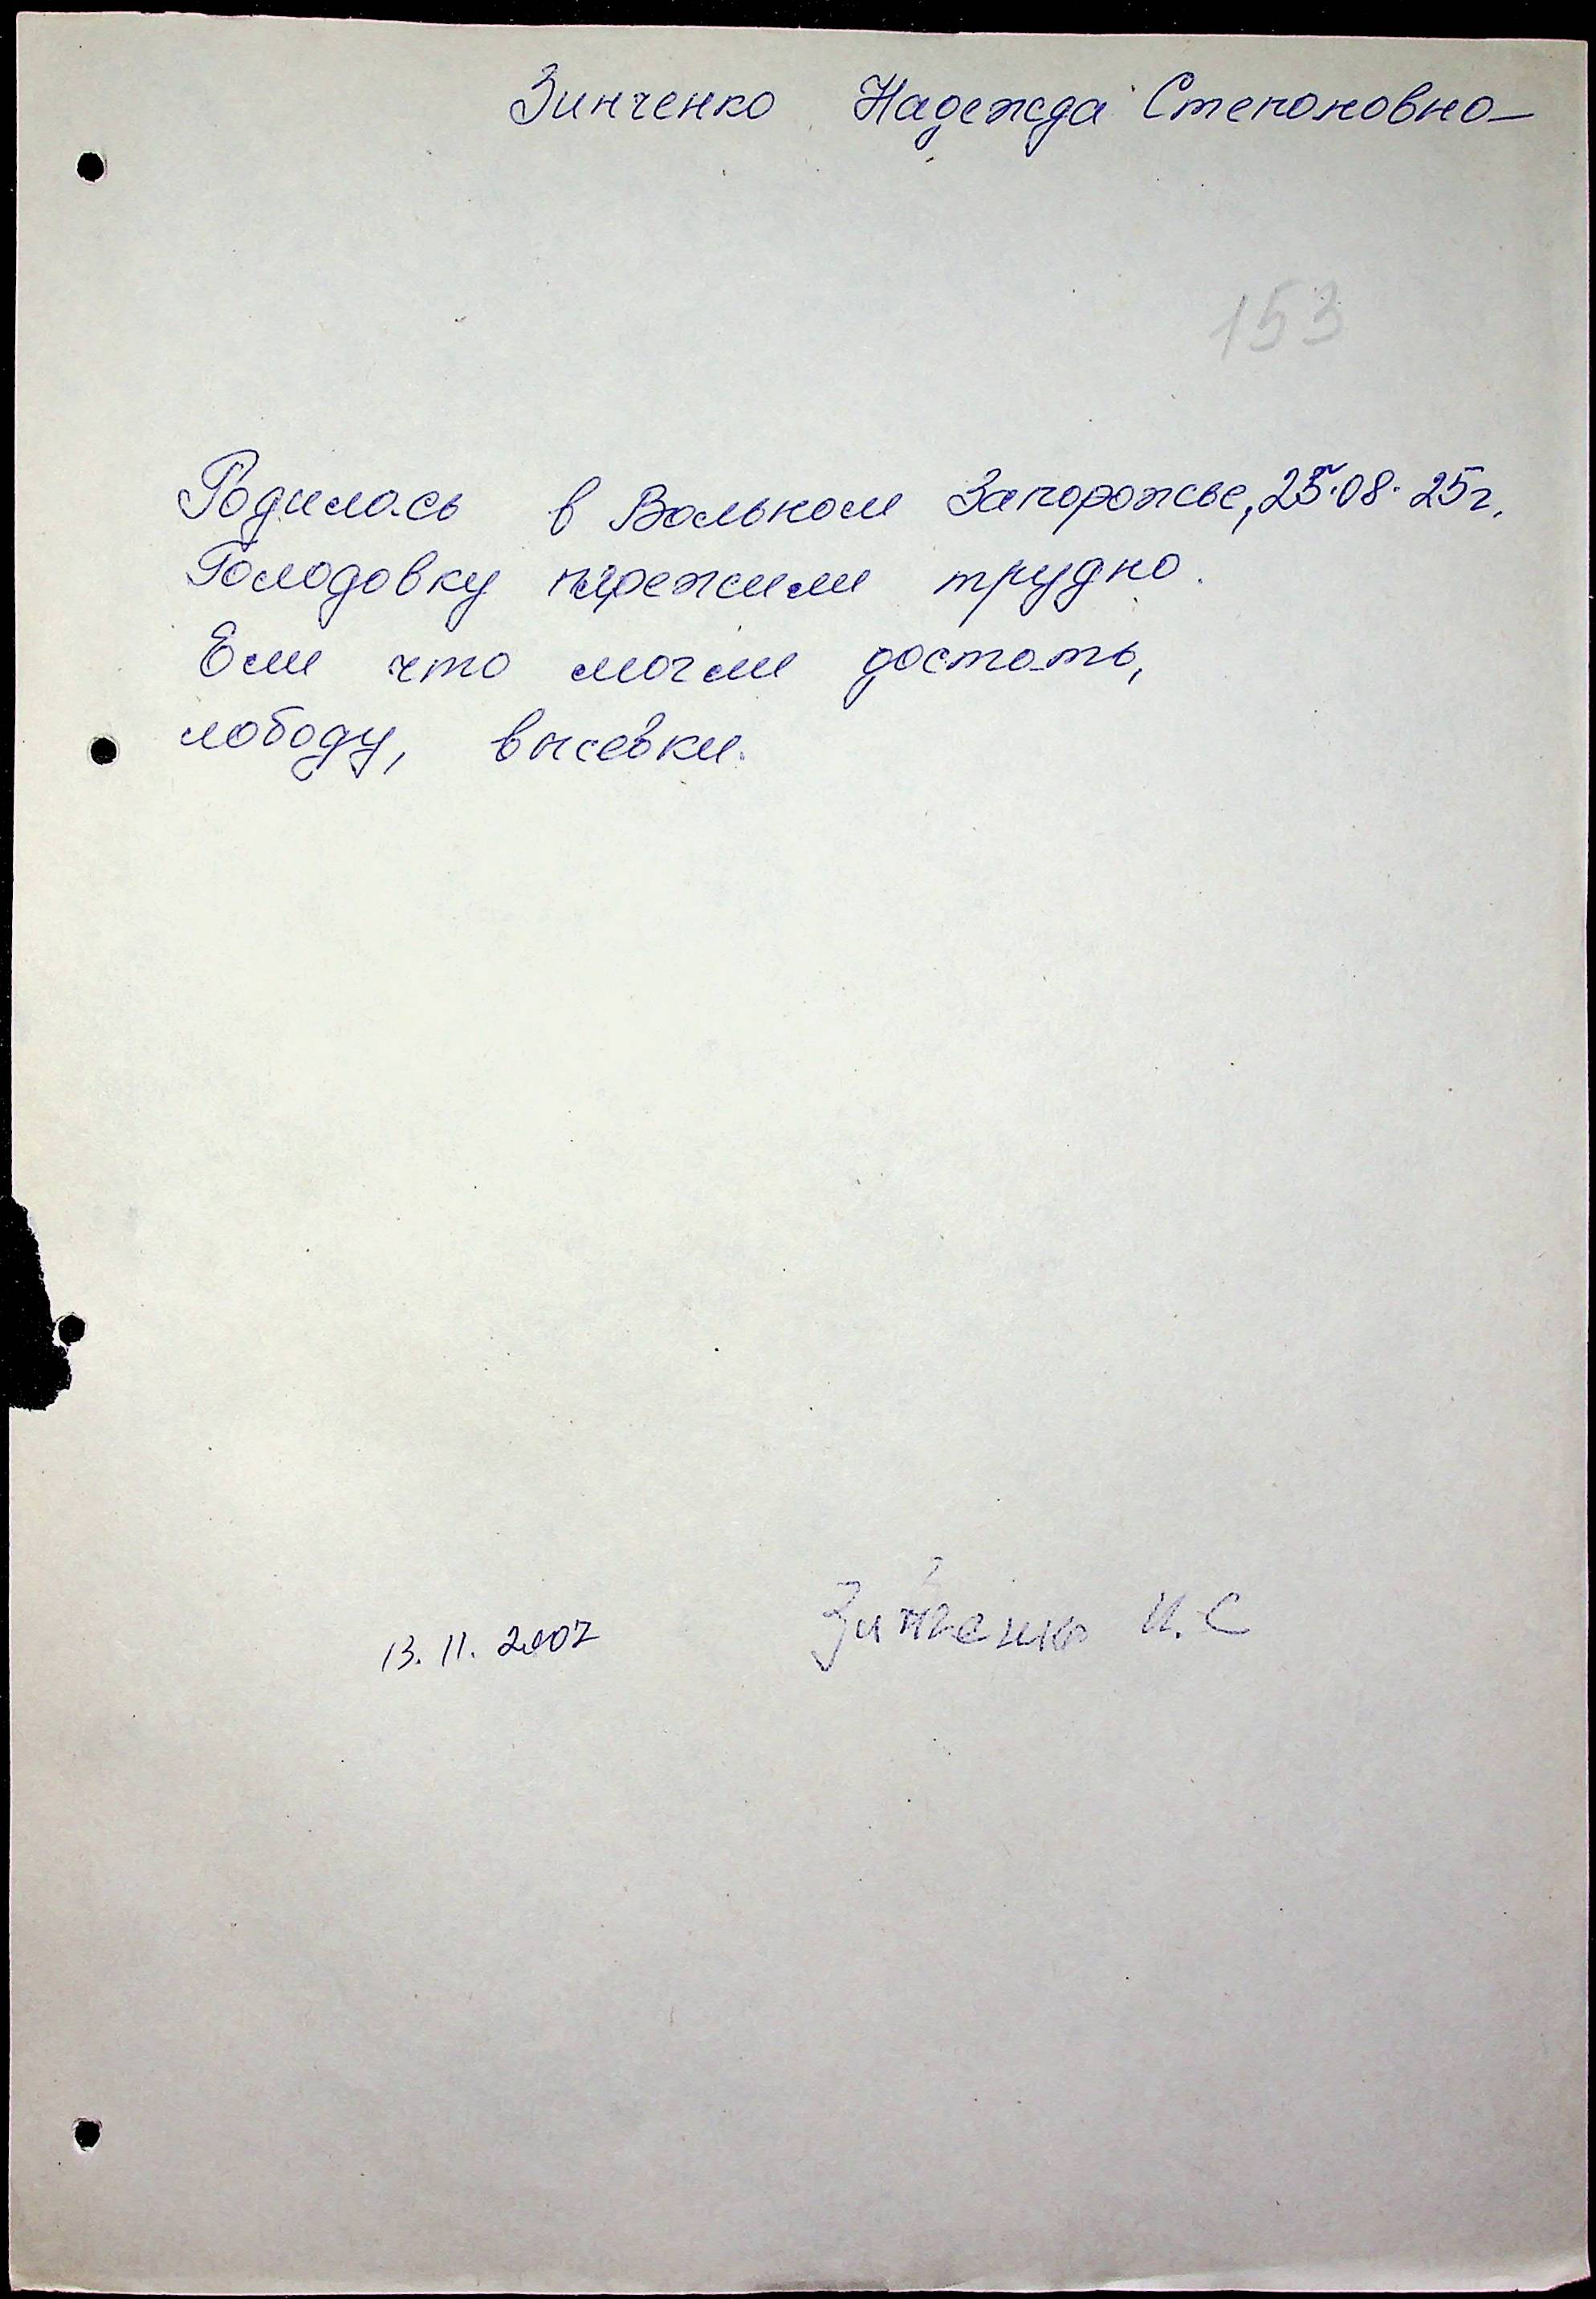 Зинченко Надежда Степановна
153
Родилась в Вольном Запорожье, 25.08.25г.
Голодовку пережили трудно.
Ели что могли достать,
лободу, высевки.
13.11.2007 Зинченко Н.С